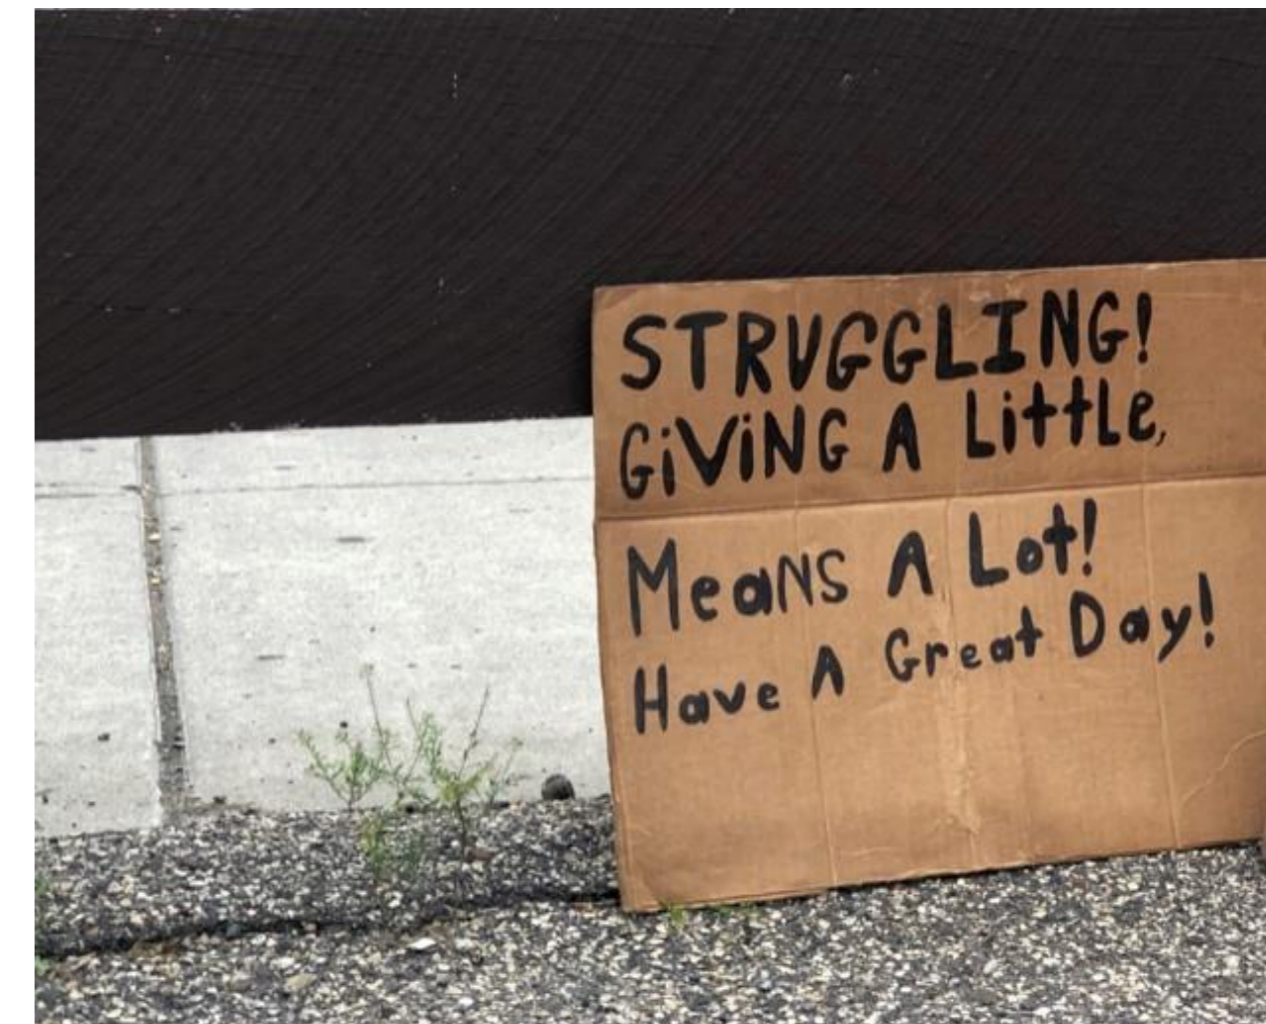 STRUGGLING!
GiViNG A LittLe,
MeaNS A Lot!
Have A Great Day!